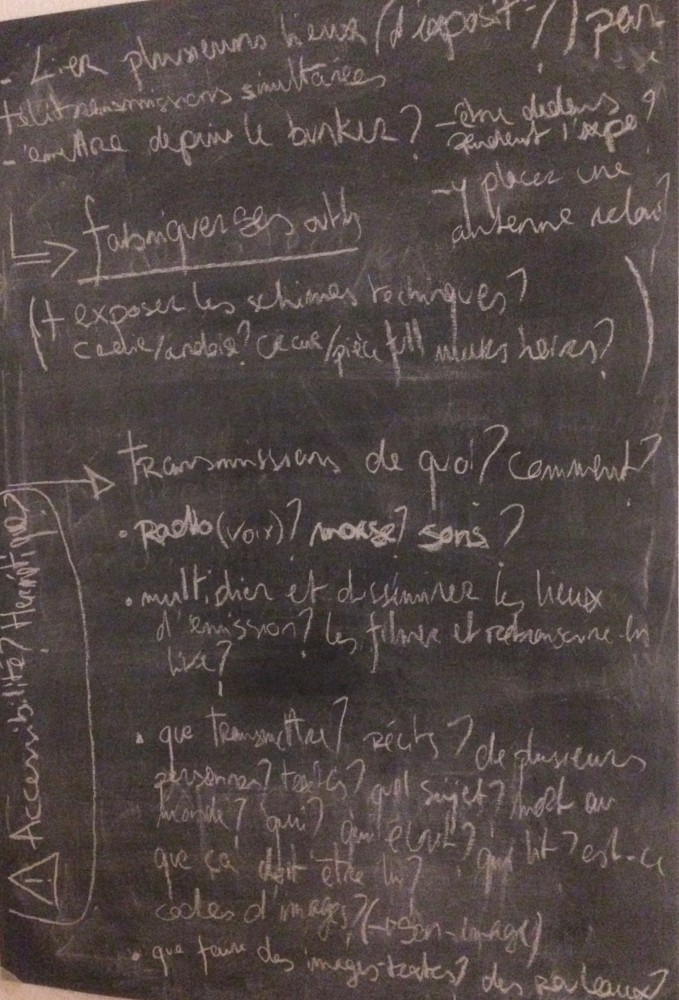 - Lier plusieurs lieux (d'exposit°/) par
télétransmissions simultanées
- émettre depuis le bunker? - être dedans
pendant l'expo?
- y placer une
antenne relais?
⇒ fabriquer ses outils
(+ exposer les schémas techniques?
craie/ardoise? craie/pièce full murs noirs?)
→ transmissions de quoi? comment?
• Radio (voix)? morse? sons?
• multiplier et disséminer les lieux
d'émission? les filmer et retransmettre en
live?
• que transmettre? récits? de plusieurs
personnes? textes? quel sujet? mort au
monde? qui? qui écrit? qui lit? est-ce
que ça doit être lu?
codes d'images? (-image)
• que faire des images-textes? des rouleaux?
⚠ Accessibilité? Hermétique?